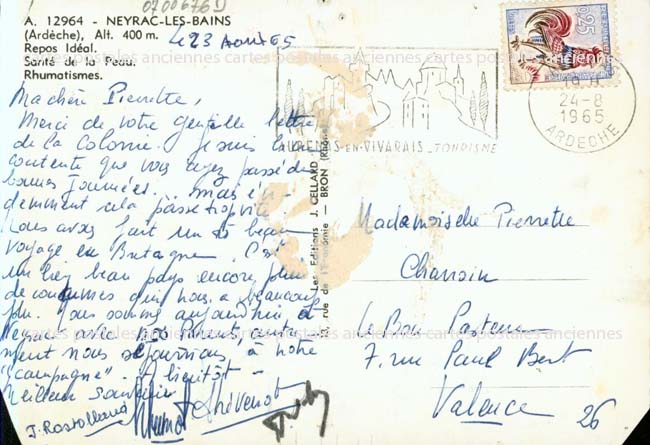 0700676D
A. 12964 - NEYRAC-LES-BAINS
(Ardèche), Alt. 400 m.
Repos Idéal.
Santé de la Peau.
Rhumatismes.
le 23 Août 65
cartes postales anciennes cartes postales anciennes cartes postales anciennes
Ma chère Pierrette,
Merci de votre gentille lettre
de la Colonie. Je suis très
contente que vous ayez passé de
bonnes journées... mais évi-
demment cela passe trop vite.
Nous avons fait un très beau
voyage en Bretagne. C'est
un très beau pays encore plein
de coutumes qui nous a beaucoup
plu. Nous sommes aujourd'hui à
Neyrac avec
ment nous séjournons à notre
"campagne". A bientôt -
Meilleur Souvenir
J. Rostolland
Thévenot
Les Editions J. CELLARD
rue de l'Economie - BRON (Rhône)
0,25
AUBENAS-EN-VIVARAIS_TOURISME
19 H
24-8
1965
ARDECHE
Mademoiselle Pierrette
Chanroin
Le Bon Pasteur
7, rue Paul Bert
Valence 26